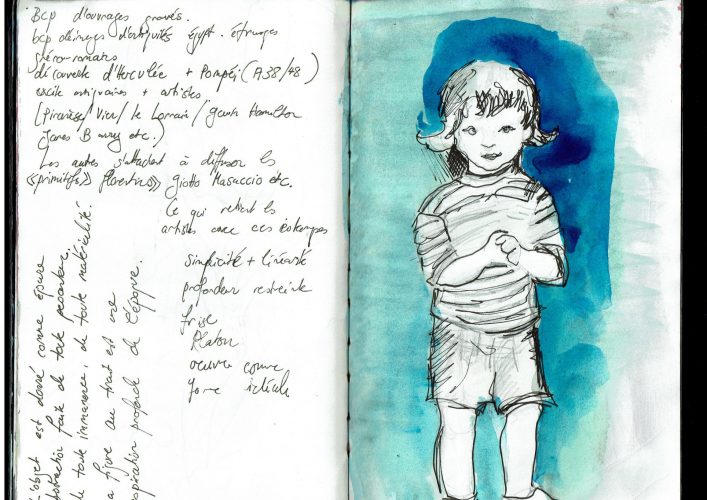 Bcp d'ouvrages gravés.
bcp d'images d'antiquités égypt. étrusques
gréco-romains
découverte d'Herculée + Pompéi (1738/48)
excite antiquaires + artistes
(Piranèse/Vien/le Lorrain/gavin Hamilton
James Barry etc.)
Les autres s'attachent à diffuser les
«primitifs» florentins» giotto Masaccio etc.
Ce qui retient les
artistes avec ces estampes
simplicité + linéarité
profondeur restreinte
frise
Platon
oeuvre comme
forme idéale
L'objet est donné comme épure
abstraction faite de toute profondeur,
de toute immanence, de toute matérialité.
la figure au trait est une
aspiration profonde de l'époque.